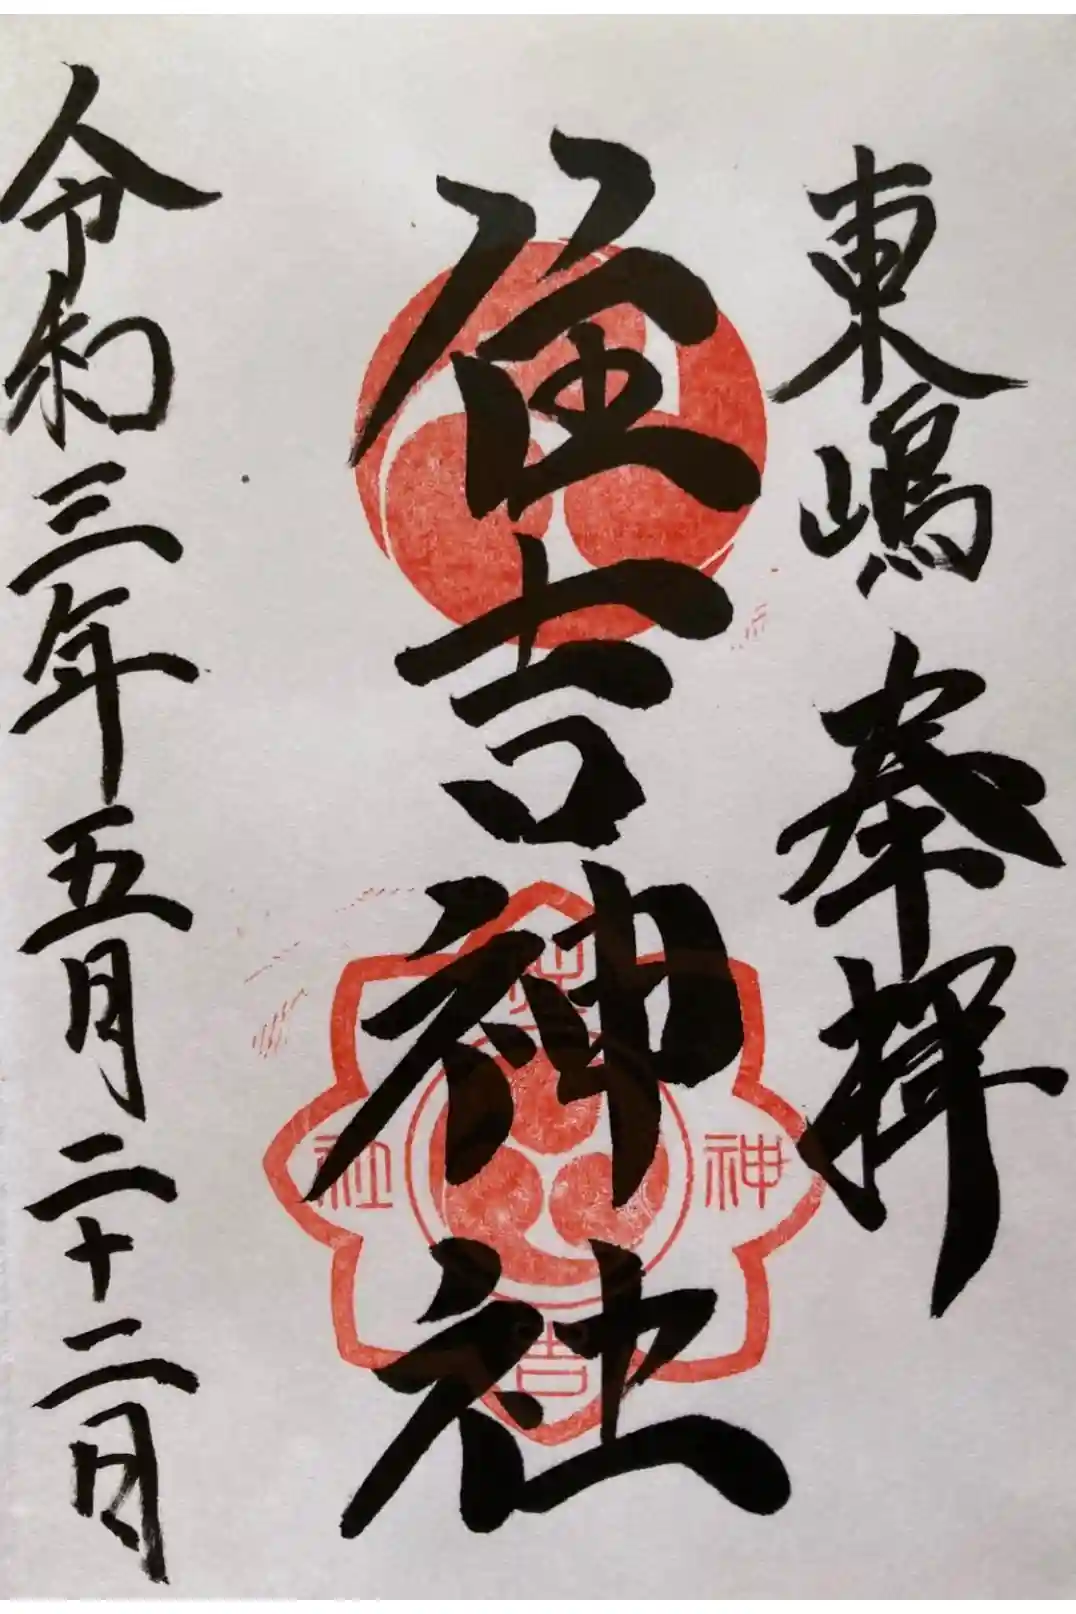 東嶋 奉拝
住吉神社
令和三年五月二十二日
住
神
社
吉